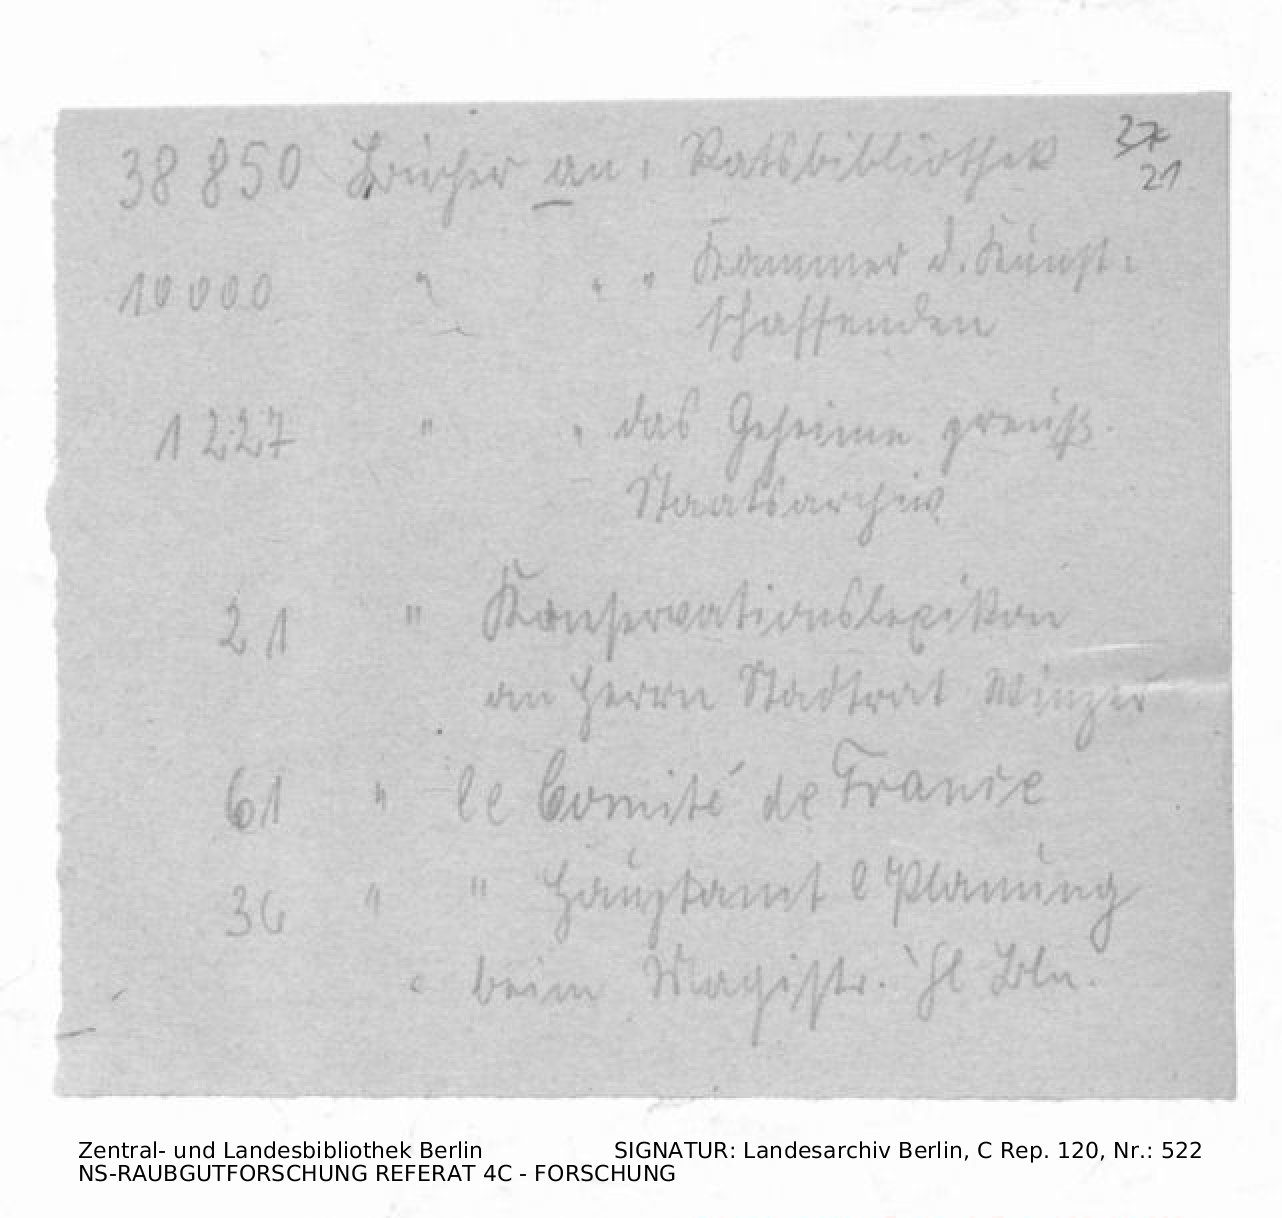 38 850 Bücher an, Ratsbibliothek
37
21
10 000 " " " Kammer d. Kunst-
schaffenden
1 227 " " das Geheime preuß.
Staatsarchiv
21 " Konservationslexikon
an Herrn Stadtrat Winzer
61 " le Comité de France
36 " " Hauptamt Planung
beim Magistr. Bln.
Zentral- und Landesbibliothek Berlin SIGNATUR: Landesarchiv Berlin, C Rep. 120, Nr.: 522
NS-RAUBGUTFORSCHUNG REFERAT 4C - FORSCHUNG